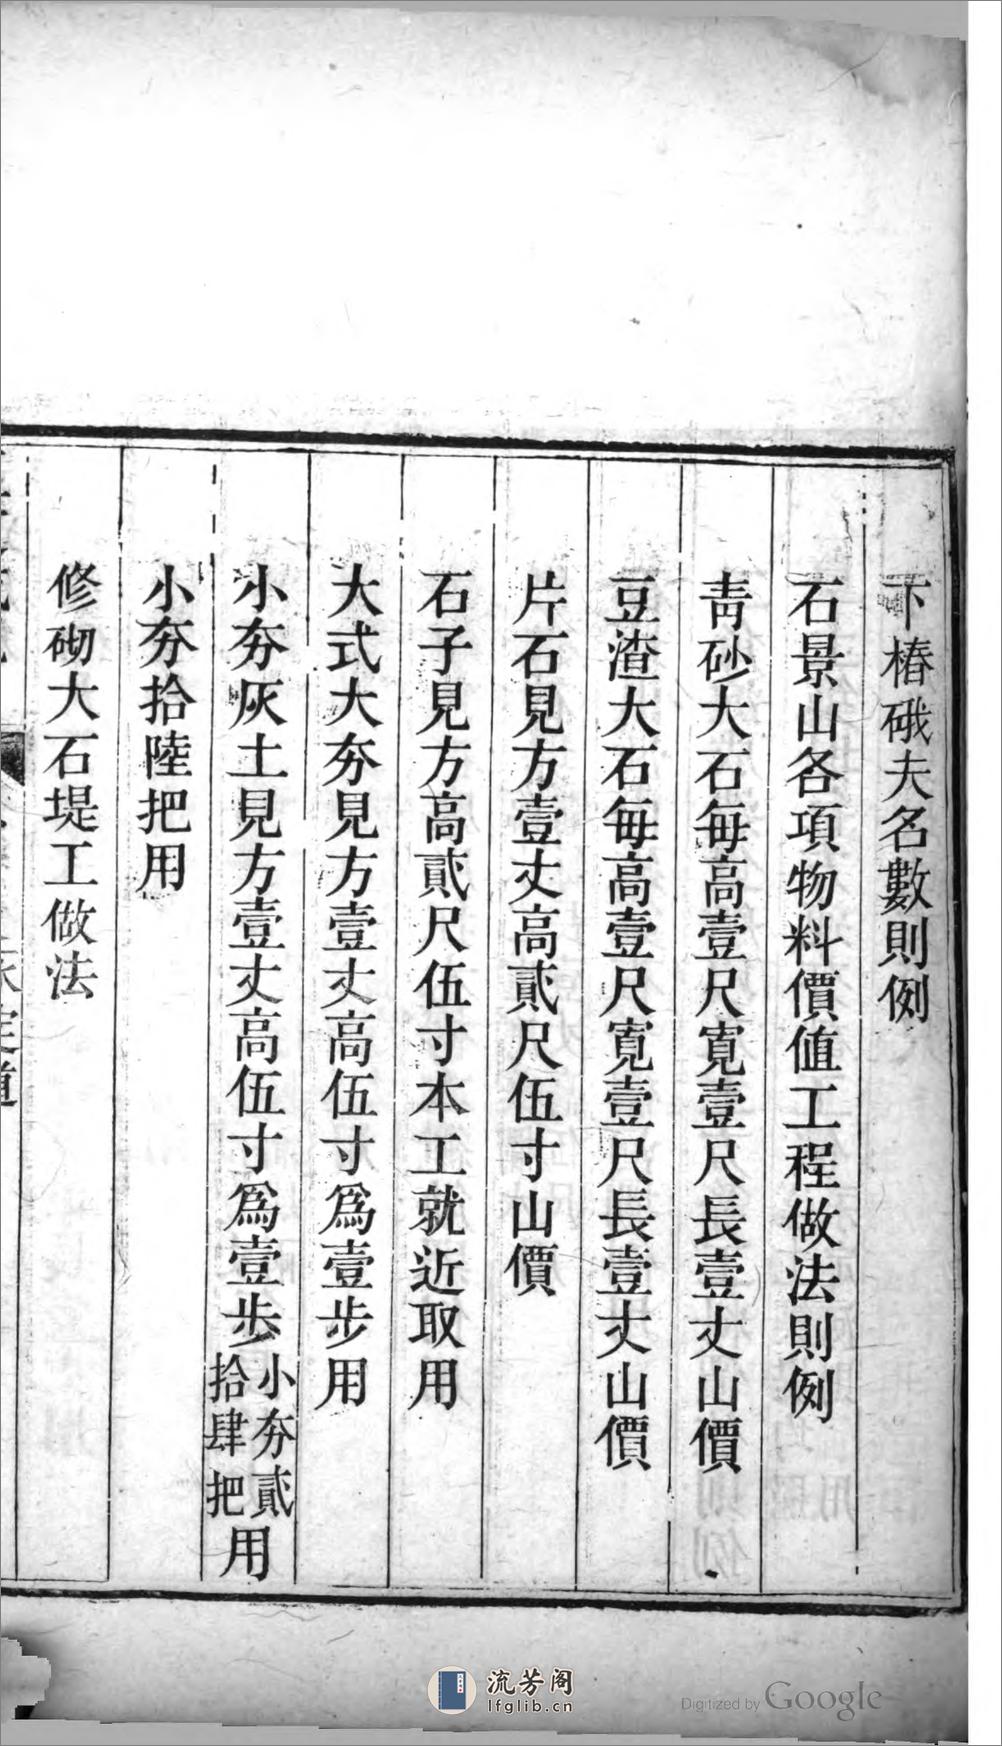 下樁硪夫名數則例
石景山各項物料價值工程做法則例
青砂大石每高壹尺寬壹尺長壹丈山價
豆渣大石每高壹尺寬壹尺長壹丈山價
片石見方壹丈高貳尺伍寸山價
石子見方高貳尺伍寸本工就近取用
大式大夯見方壹丈高伍寸為壹步用
小夯灰土見方壹丈高伍寸為壹步小夯貳拾肆把用
小夯拾陸把用
修砌大石堤工做法
流芳阁
lfglib.cn
Digitized by Google